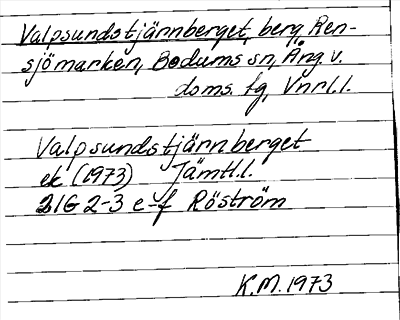 Valpsundstjärnberget, berg, Ren-
sjömarken, Bodums sn, Ång. v.
doms. fg, Vnrl.l.
Valpsundstjärnberget
ek (1973) Jämtl.l.
21G 2-3 e-f Röström
K.M. 1973